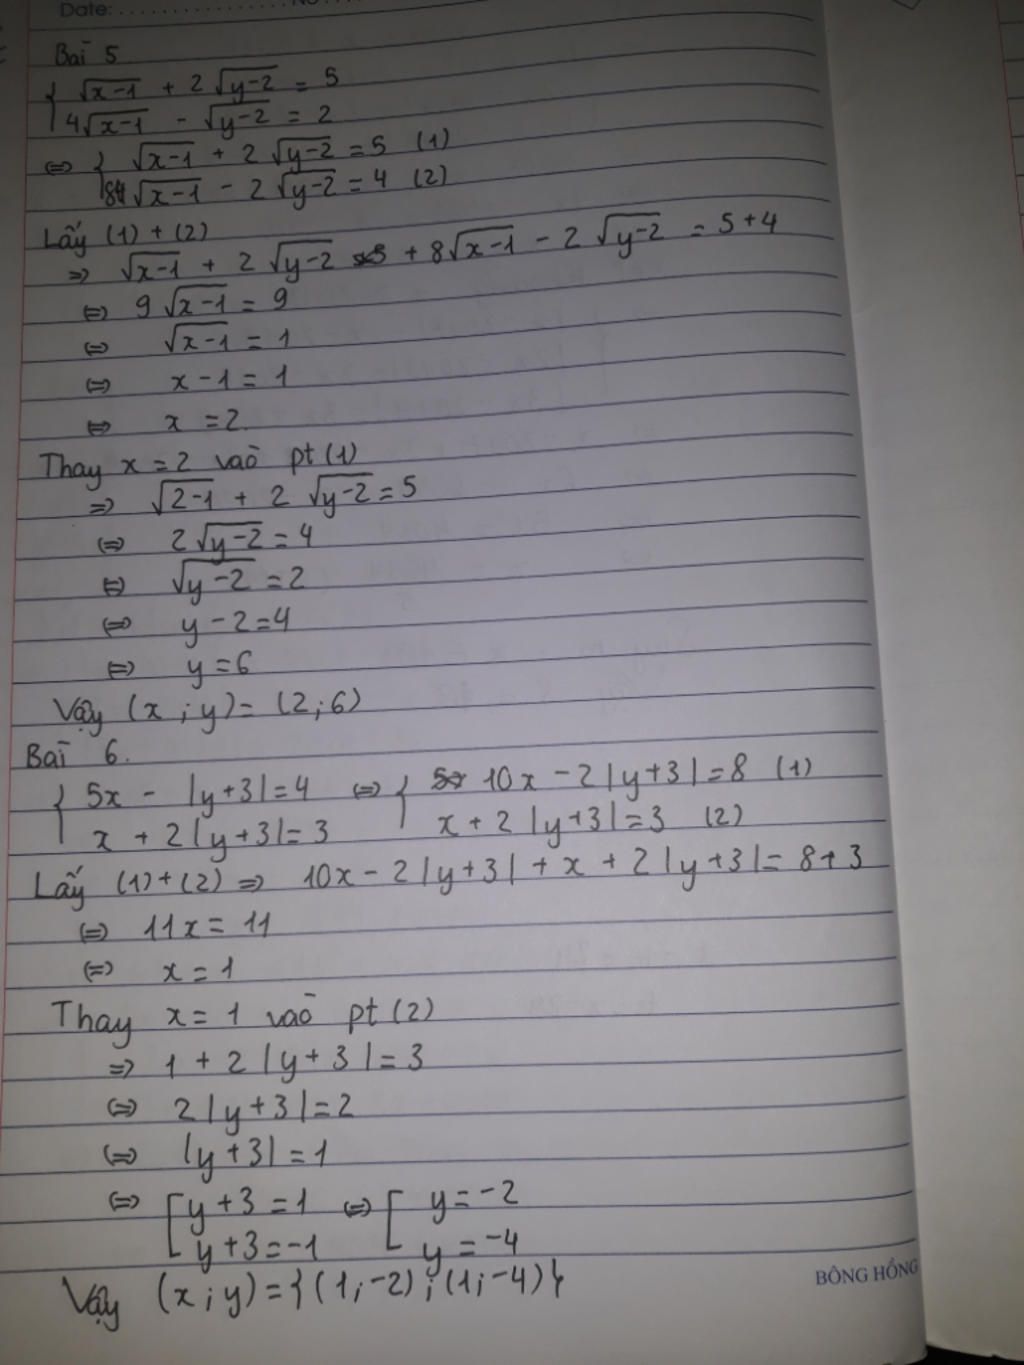 Date:
Bài 5
{ √x-1 + 2√y-2 = 5
4√x-1 - √y-2 = 2
⇔ { √x-1 + 2√y-2 = 5 (1)
8√x-1 - 2√y-2 = 4 (2)
Lấy (1) + (2)
⇒ √x-1 + 2√y-2 + 8√x-1 - 2√y-2 = 5+4
⇔ 9√x-1 = 9
⇔ √x-1 = 1
⇔ x-1 = 1
⇔ x = 2
Thay x = 2 vào pt (1)
⇒ √2-1 + 2√y-2 = 5
⇔ 2√y-2 = 4
⇔ √y-2 = 2
⇔ y-2=4
⇔ y=6
Vậy (x;y)= (2;6)
Bài 6.
{ 5x - |y+3|=4 ⇔ { 10x - 2|y+3|=8 (1)
x + 2|y+3|=3 x+2|y+3|=3 (2)
Lấy (1)+(2) ⇒ 10x - 2|y+3| + x + 2|y+3|= 8+3
⇔ 11x = 11
⇔ x = 1
Thay x = 1 vào pt (2)
⇒ 1 + 2|y+3|=3
⇔ 2|y+3|=2
⇔ |y+3|=1
⇔ [ y+3 = 1 ⇔ [ y=-2
y+3=-1 y=-4
Vậy (x;y)={(1;-2);(1;-4)}
BÔNG HỒNG